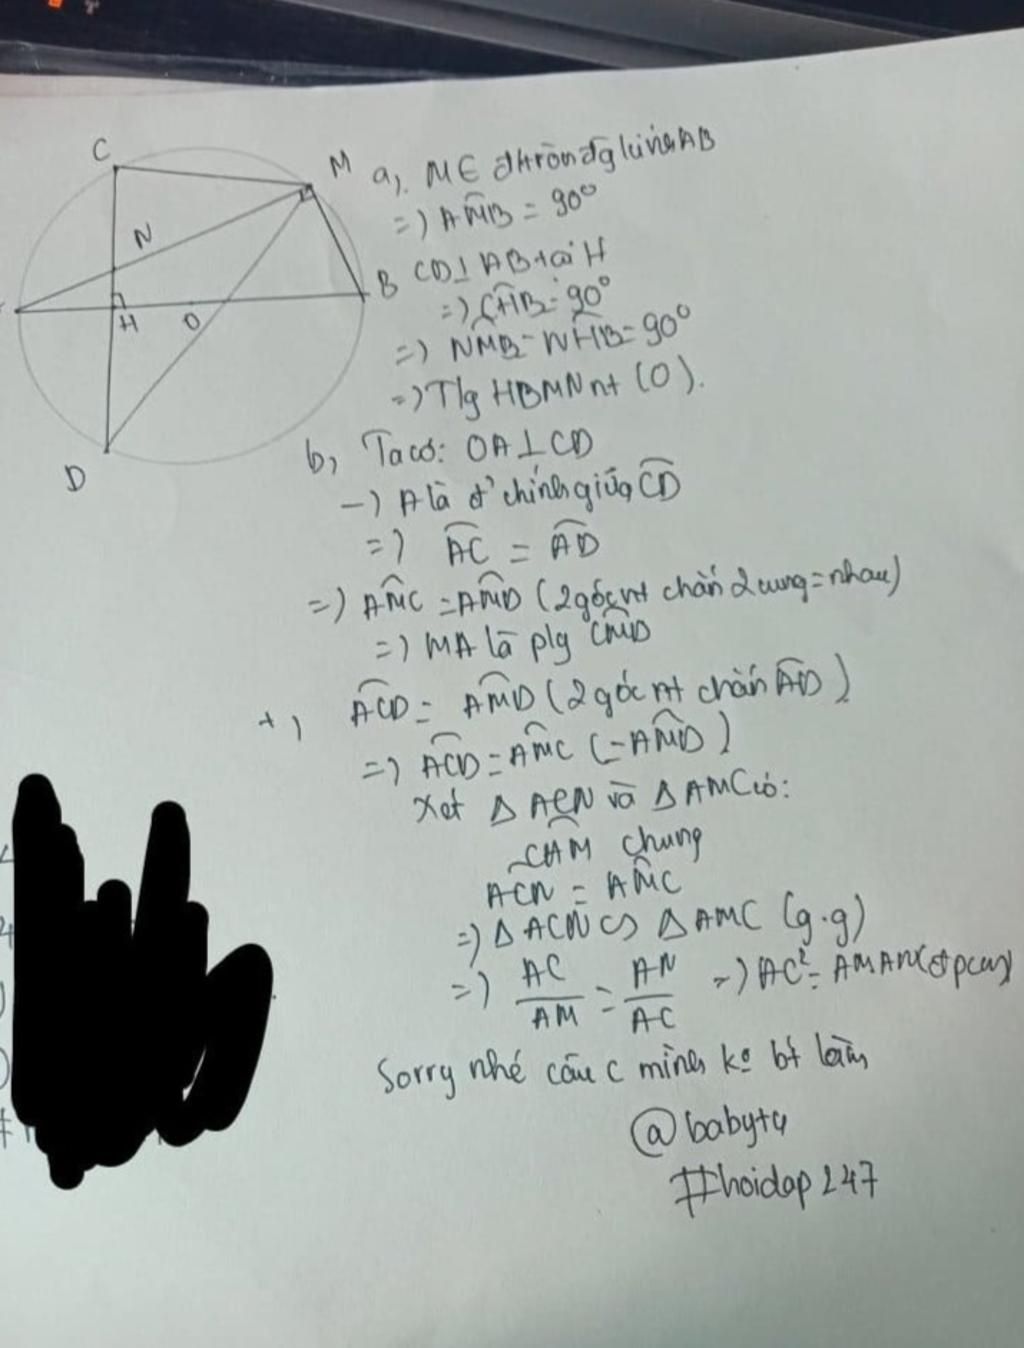 C
M
N
B
H
O
D
a, M ∈ đtròn đg kính AB
=) AMB = 90°
CD ⊥ AB tại H
=) CHB = 90°
=) NMB = NHB = 90°
=) T/g HBMN nt (O).
b, Ta có: OA ⊥ CD
-) A là đ' chính giữa CD
=) AC = AD
=) AMC = AMD (2 góc nt chắn 2 cung = nhau)
=) MA là p/g CMD
+, ACD = AMD (2 góc nt chắn AD)
=) ACD = AMC (= AMD)
Xét Δ ACN và Δ AMC có:
CAM chung
ACN = AMC
=) Δ ACN ∽ Δ AMC (g.g)
=) AC/AM = AN/AC -) AC² = AM.AN (đpcm)
Sorry nhé câu c mình ko bt làm
@babyty
#hoidap247